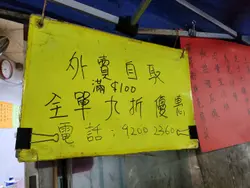 外賣自取
滿$100
全單九折優惠
電話：9200 2360